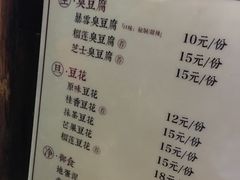 生·臭豆腐
暴雪臭豆腐 10元/份
榴莲臭豆腐 荐 15元/份
芝士臭豆腐 荐 15元/份
旦·豆花
原味豆花 12元/份
桂香豆花 荐 15元/份
抹茶豆花 15元/份
芒果豆花 15元/份
榴莲豆花 荐 18元/份
净·御食